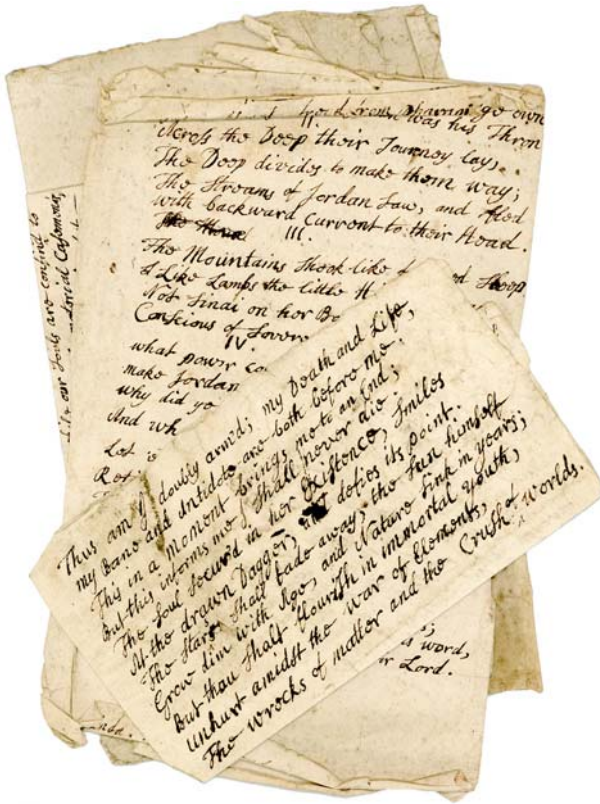 was his Thron
II.
Across the Deep their Journey lay,
The Deep divides to make them way;
The Streams of Jordan saw, and fled
with backward Current to their Head.
III.
The Mountains Shook like Sheep
Like Lamps the little
Not Sinai on her
Conscious of
IV.
what power
make Jordan
why did
And
Let
our Souls are confind to
Thus am I doubly arm'd; my Death and Life,
my Bane and Antidote are both before me:
This in a moment brings me to an End;
But this informs me I shall never die.
The Soul secur'd in her Existence, Smiles
At the drawn Dagger, and defies its point.
The Stars shall fade away, the Sun himself
Grow dim with Age, and Nature Sink in years;
But thou shalt flourish in immortal youth,
unhurt amidst the war of Elements,
The wrecks of matter and the Crush of worlds.
word,
Lord.